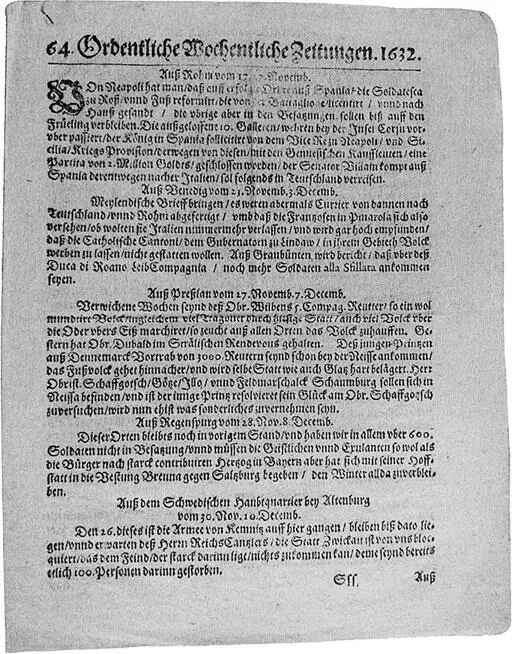 64. Ordentliche Wochentliche Zeitungen. 1632.
Auß Rohm vom 17. 27. Novemb.
VOn Neapoli hat man/ daß auff erfolgte Ordre auß Spania/ die Soldatesca
zu Roß/ vnnd Fuß reformirt/ die von der Battaglio licentirt / vnnd nach
Hauß gesandt / die vbrige aber in den Besatzungen sollen biß auff den
Früeling verbleiben. Die außgeloffene 10. Galleren/ wehren bey der Insel Corsu vor-
vber passiert/ der König in Spania sollicitirt von dem Vice Re zu Neapoli/ vnd Si-
cilia/ Kriegs Provision/ derwegen von diesen/ mit den Genuesischen Kauffleuten / eine
Partita von 2. Million Goldts/ geschlossen worden/ der Senator Villain kompt auß
Spania derentwegen nacher Italien/ sol folgends in Teutschland verreisen.
Auß Venedig vom 23. Novemb. 3. Decemb.
Meylendische Brieff bringen / es weren abermals Currier von dannen nach
Teutschland/ vnnd Rohm abgefertigt / vmb daß die Frantzosen in Pinarola sich also
versehen/ ob wolten sie Italien nimmermehr verlassen / vnd wird gar hoch empfunden/
daß die Catholische Cantoni/ dem Gubernatorn zu Lindaw/ in ihrem Gebieth Volck
werben zu lassen/ nicht gestatten wollen. Auß Graubünten wird bericht / daß vber deß
Duca di Roano Leib Compagnia / noch mehr Soldaten alla Sfillata ankommen
seyen.
Auß Preßlau vom 27. Novemb. 7. Decemb.
Verwichene Wochen seynd deß Obr. Wilbens 5. Compag. Reutter/ so ein wol
mundiert Volck/ ungleichem viel Tragoner durch hiesige Statt / auch viel Volck vber
die Oder vbers Eiß marchiret/ so zeucht auß allen Orten das Volck zuhauffen. Ge-
stern hat Obr. Dubald im Strälischen Rendevous gehalten. Deß jungen Printzen
auß Dennemarck Vortrab von 3000. Reutern seynd schon bey der Neisse ankommen/
das Fußvolck gehet hinnacher/ vnd wird selbe Statt wie auch Glatz hart belägert. Herr
Obrist. Schaffgotsch/ Götze/ Illo/ vnnd Feldmarschalck Schaumburg sollen sich in
Neissa befinden/ vnd ist der iunge Printz resolvieret sein Glück am Obr. Schaffgotsch
zuversuchen/ wird nun ehist was sonderliches zuvernehmen seyn.
Auß Regenspurg vom 28. Nov. 8. Decemb.
Dieser Orten bleibts noch in vorigem Stand/ vnd haben wir in allem vber 600.
Soldaten nicht in Besatzung/ vnnd müssen die Geistlichen vnnd Exulanten so wol als
die Bürger nach starck contribuiren Hertzog in Bayern aber hat sich mit seiner Hoff-
statt in die Vestung Brenna gegen Saltzburg begeben / den Winter allda zuverblei-
ben.
Auß dem Schwedischen Haubtquartier bey Altenburg
vom 30. Nov. 10. Decemb.
Den 26. dieses ist die Armee von Kemnitz auff hier gangen / bleiben biß dato lie-
gen/ vnnd erwarten deß Herrn Reichs Cantzlers/ die Statt Zwickau ist von vns bloc-
quiert/ das dem Feind/ der starck darinn lige/ nichts zukommen kan/ deme seynd bereits
etlich 100. Personen darinn gestorben.
Sss.
Auß